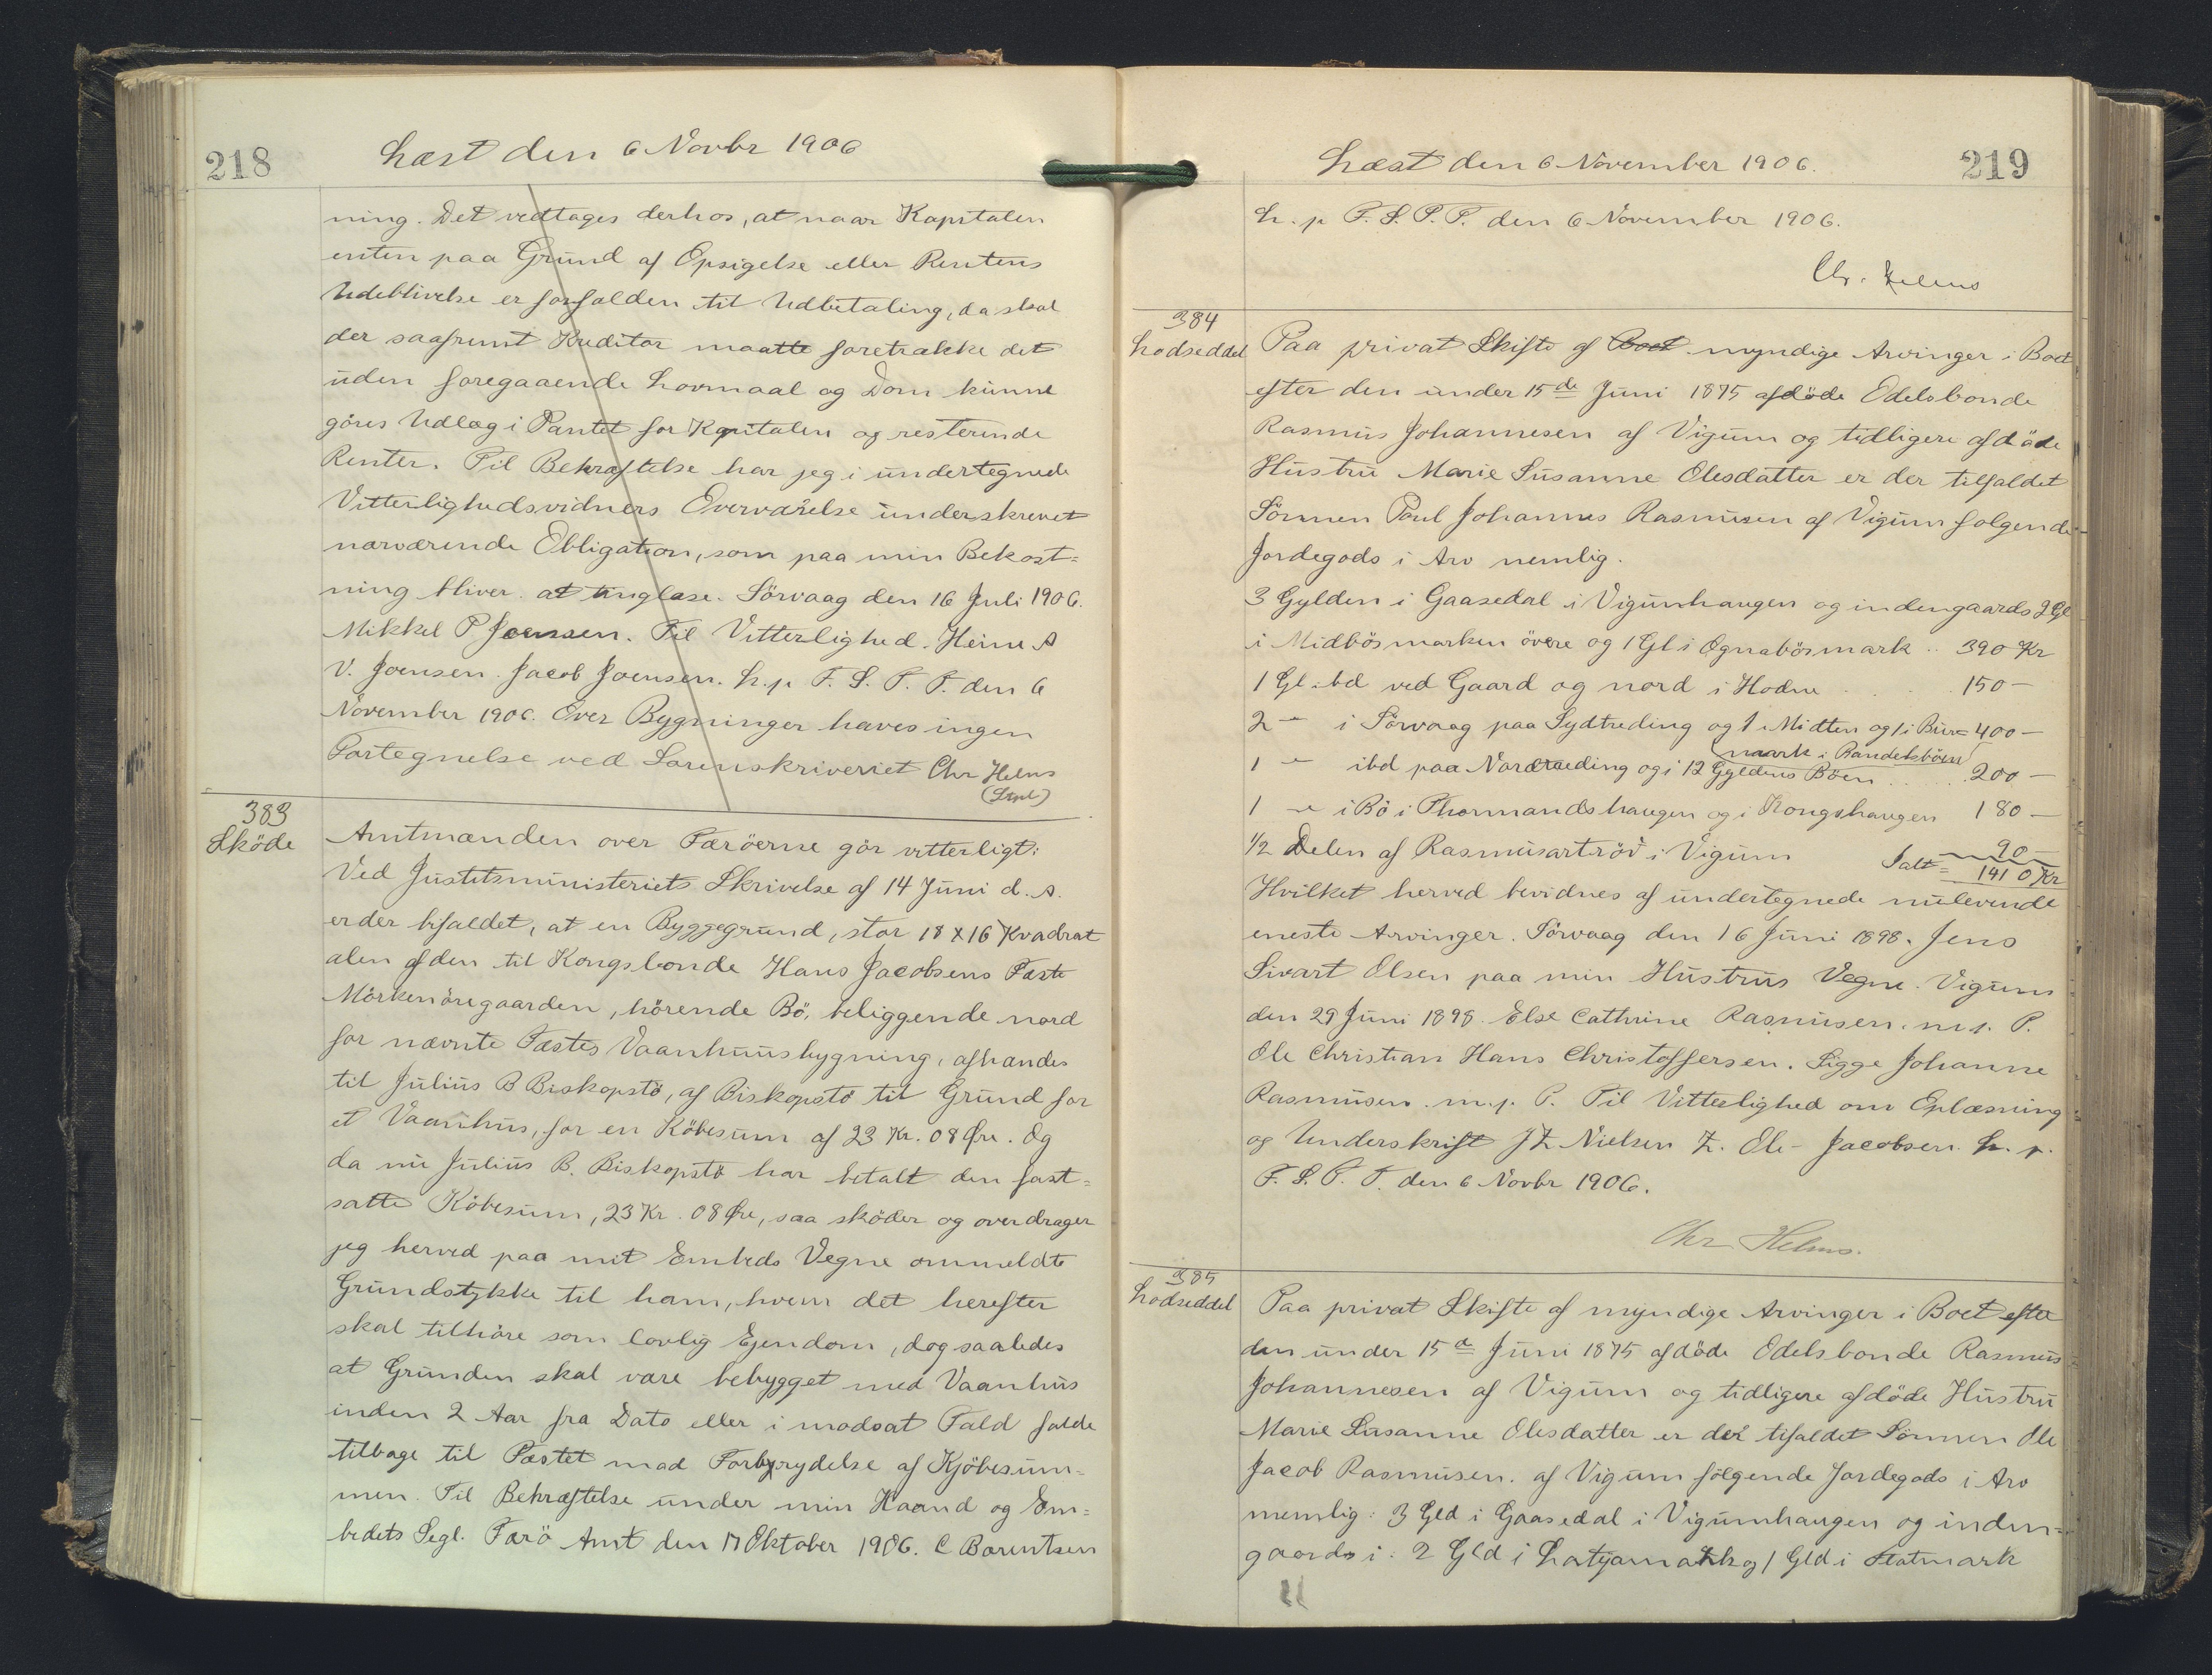 218
Læst den 6 Novbr 1906
ning. Det vedtages derhos, at naar Kapitalen
enten paa Grund af Opsigelse eller Rentens
Udeblivelse er forfalden til Udbetaling, da skal
der saafremt Kreditor maatte foretrække det
uden foregaaende Lovmaal og Dom kunne
göres Udlæg i Pantet for Kapitalen og resterende
Renter. Til Bekræftelse har jeg i undertegnede
Vitterlighedsvidners Overværelse underskrevet
nærværende Obligation, som paa min Bekost=
ning bliver at tinglæse. Sörvaag den 16 Juli 1906.
Mikkel P Joensen. Til Vitterlighed. Heine A
V. Joensen. Jacob Joensen. L. p. F. S. P. T. den 6
November 1906. Over Bygninger haves ingen
Fortegnelse ved Sorenskriveriet Chr Helms
383
Sköde
Amtmanden over Færöerne gör vitterligt:
Ved Justitsministeriets Skrivelse af 14 Juni d. A.
er der bifaldet, at en Byggegrund, stor 18 x 16 Kvadrat
alen af den til Kongsbonde Hans Jacobsens Fæste
Mörkenöregaarden, hörende Bö, beliggende nord
for nævnte Fæstes Vaanhuusbygning, afhændes
til Julius B Biskopstö, af Biskopstö til Grund for
et Vaanhus, for en Köbesum af 23 Kr. 08 Øre. Og
da nu Julius B. Biskopstö har betalt den fast=
satte Köbesum, 23 Kr. 08 Øre, saa sköder og overdrager
jeg herved paa mit Embeds Vegne ommeldte
Grundstykke til ham, hvem det herefter
skal tilhöre som lovlig Ejendom, dog saaledes
at Grunden skal være bebygget med Vaanhus
inden 2 Aar fra Dato eller i modsat Fald falde
tilbage til Fæstet mod Forbrydelse af Kjöbesum=
men. Til Bekræftelse under min Haand og Em=
bedets Segl. Færö Amt den 17 Oktober 1906. C Bærentsen
Læst den 6 November 1906.
219
L. p F. S. P. T. den 6 November 1906.
Chr. Helms
384
Lodseddel
Paa privat Skifte af Boet myndige Arvinger i Boet
efter den under 15de Juni 1875 afdöde Odelsbonde
Rasmus Johannesen af Vigum og tidligere afdöde
Hustru Marie Susanne Olesdatter er der tilfaldet
Sönnen Poul Johannes Rasmusen af Vigum følgende
Jordegods i Arv nemlig.
3 Gylden i Gaasedal i Vigumhaugen og indengaards 2 Gl
i Midbösmarken övere og 1 Gl i Ognabösmark .. 390 Kr
1 Gl. ibd ved Gaard og nord i Hodne . . . . 150 —
2 — i Sörvaag paa Sydtreding og 1 i Midten og 1 i Bur= 400 —
mark i Bandelsböen
1 — ibd paa Nordtreding og i 12 Gyldens Böen . . . 200 —
1 — i Bö i Thormandshaugen og i Kongshaugen 180 —
1/2 Delen af Rasmusartröd i Vigum 90 —
Ialt = 1410 Kr
Hvilket herved bevidnes af undertegnede nulevende
eneste Arvinger. Sörvaag den 16 Juni 1898. Jens
Sivart Olsen paa min Hustrus Vegne. Vigum
den 29 Juni 1898. Else Cathrine Rasmusen. m. p. P.
Ole Christian Hans Christoffersen. Sigge Johanne
Rasmusen. m. p. P. Til Vitterlighed om Oplæsning
og Underskrift J Z Nielsen Z. Ole- Jacobsen. L. p.
F. S. P. T. den 6 Novbr 1906.
Chr Helms.
385
Lodseddel
Paa privat Skifte af myndige Arvinger i Boet efter
den under 15de Juni 1875 afdöde Odelsbonde Rasmus
Johannesen af Vigum og tidligere afdöde Hustru
Marie Susanne Olesdatter er der tilfaldet Sönnen Ole
Jacob Rasmusen. af Vigum fölgende Jordegods i Arv
nemlig: 3 Gld i Gaasedal i Vigumhaugen og inden=
gaards i: 2 Gld i og 1 Gld i
11